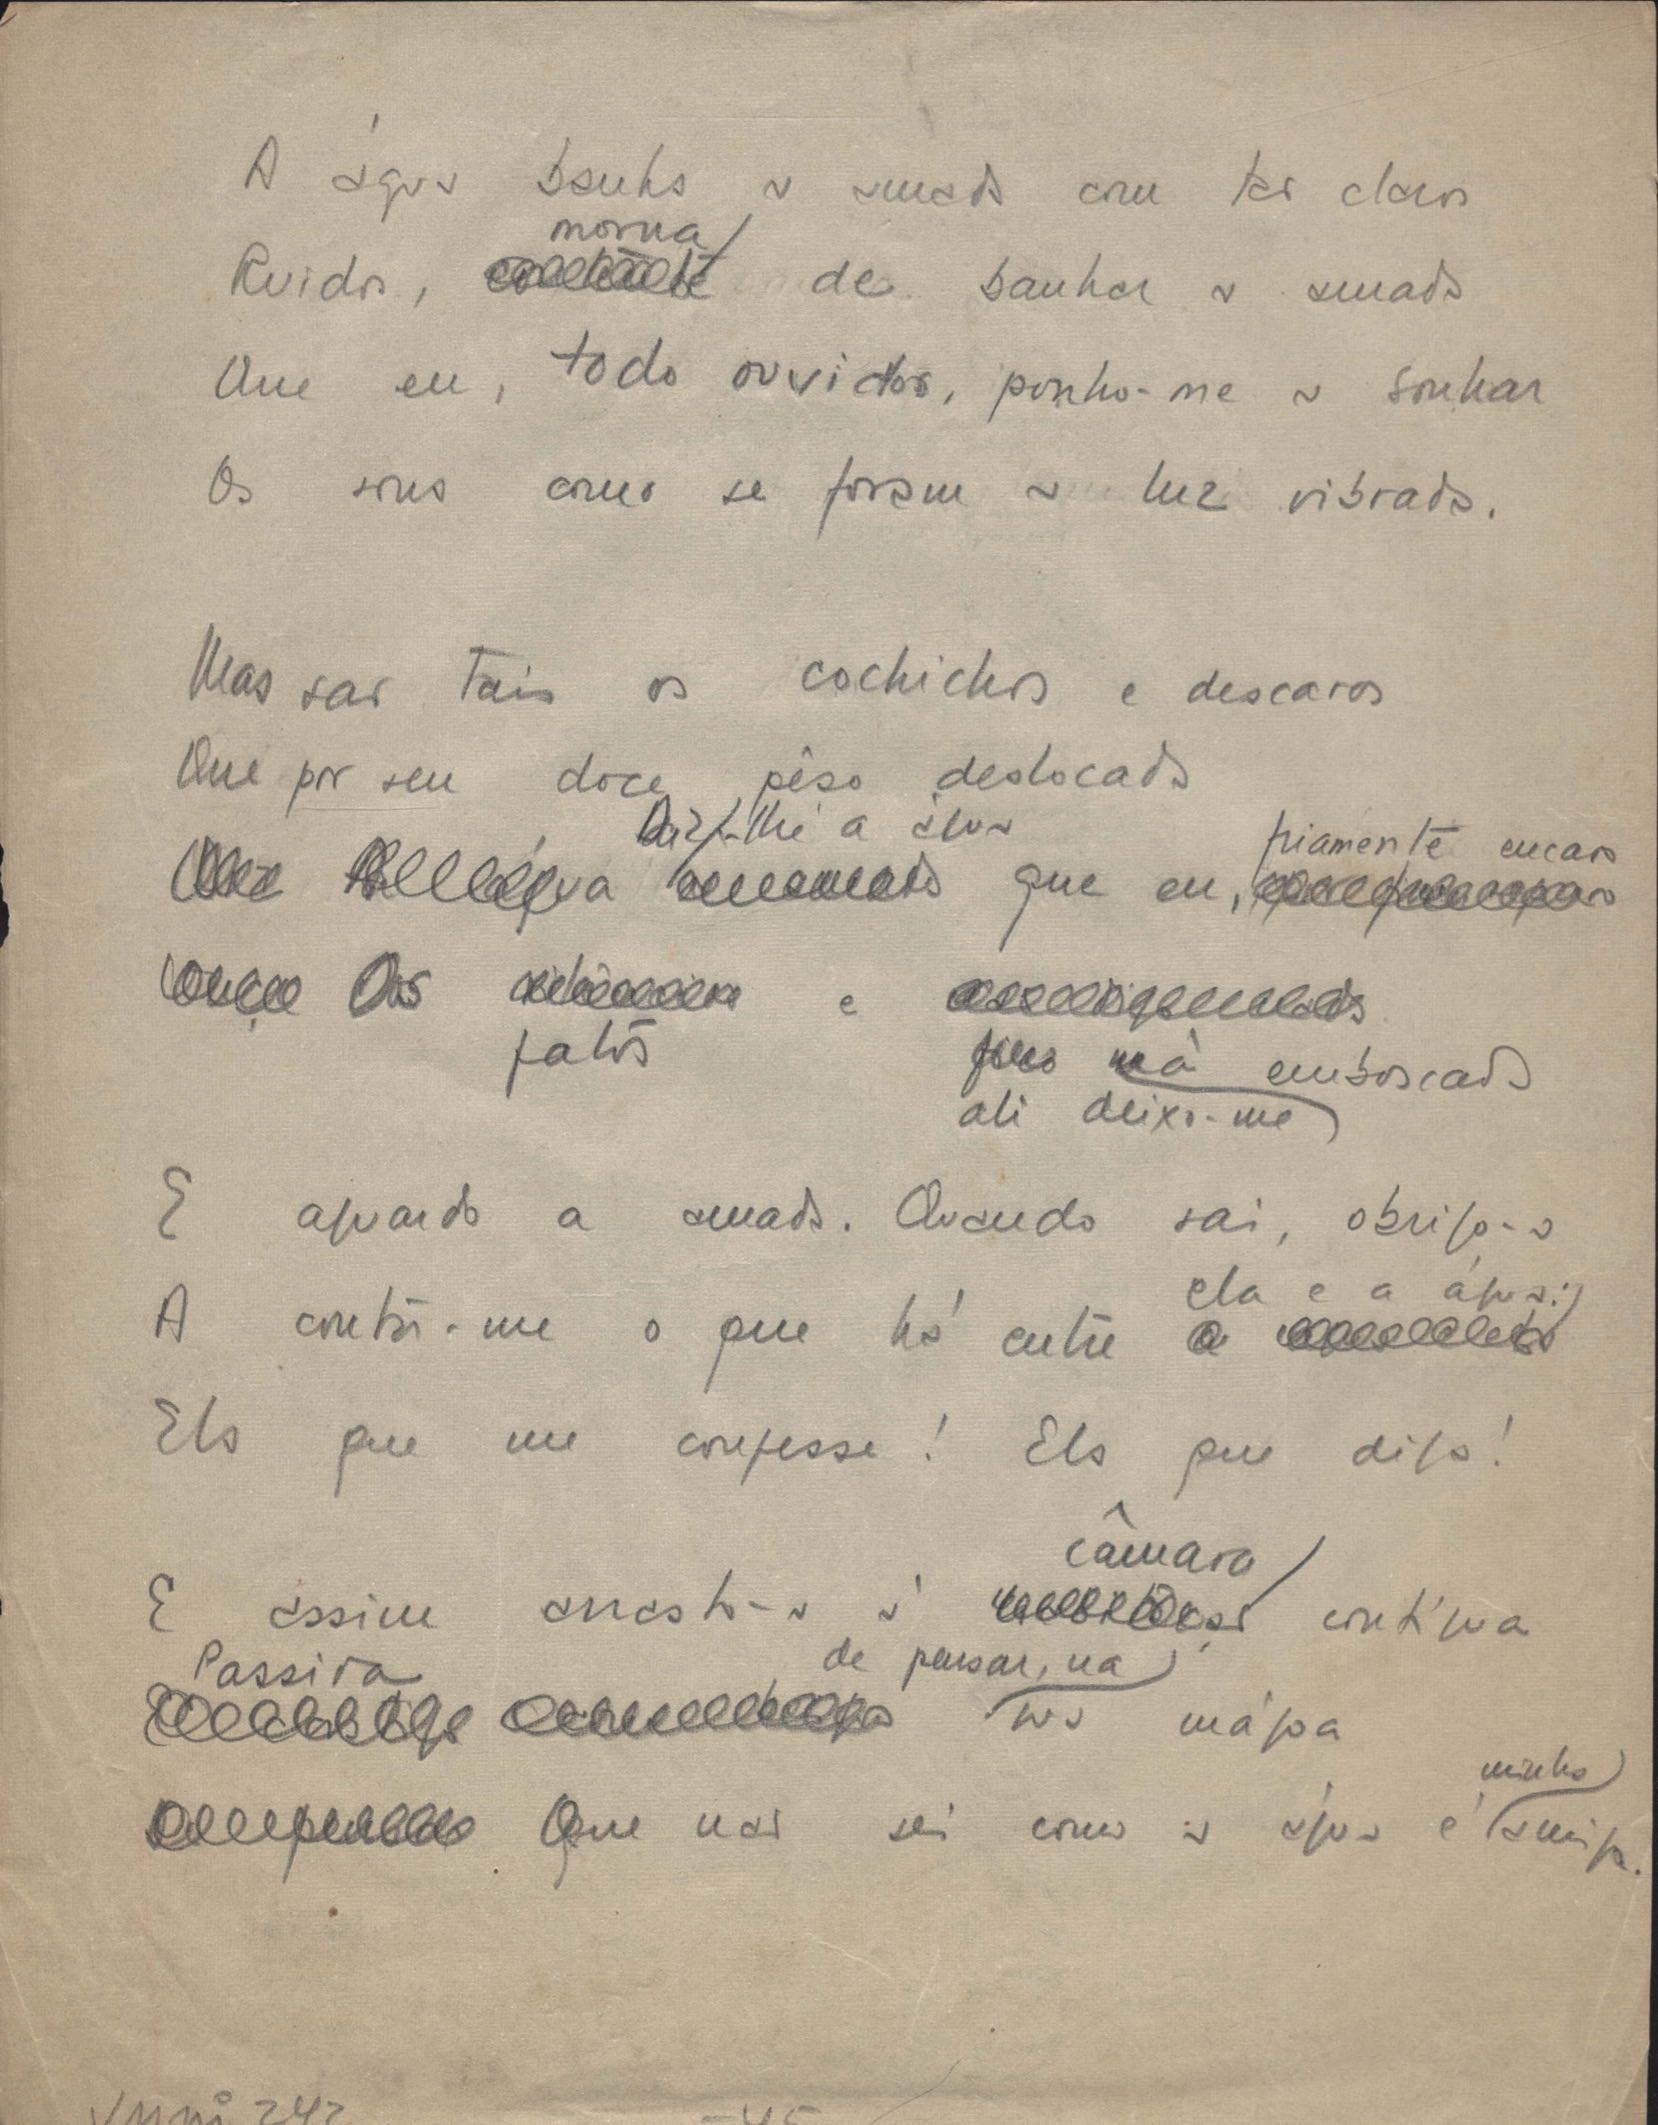 A água banha a amada com tão claros
morna
Ruidos, de banhar a amada
Que eu, todo ouvidos, ponho-me a sonhar
Os sons como se foram a luz vibrada.
Mas são tais os cochichos e descaros
Que por seu doce pêso deslocada
Diz-lhe a água
friamente encaro
que eu,
Os e
fatos
má emboscada
ali deixo-me
E aguardo a amada. Quando sai, obrigo-a
ela e a água:
A contar-me o que há entre
Ela que me confesse! Ela que diga!
câmara
E assim arrasto-a à contígua
Passiva de pensar, na
sua mágoa
minha
Que não sei como a água é amiga.